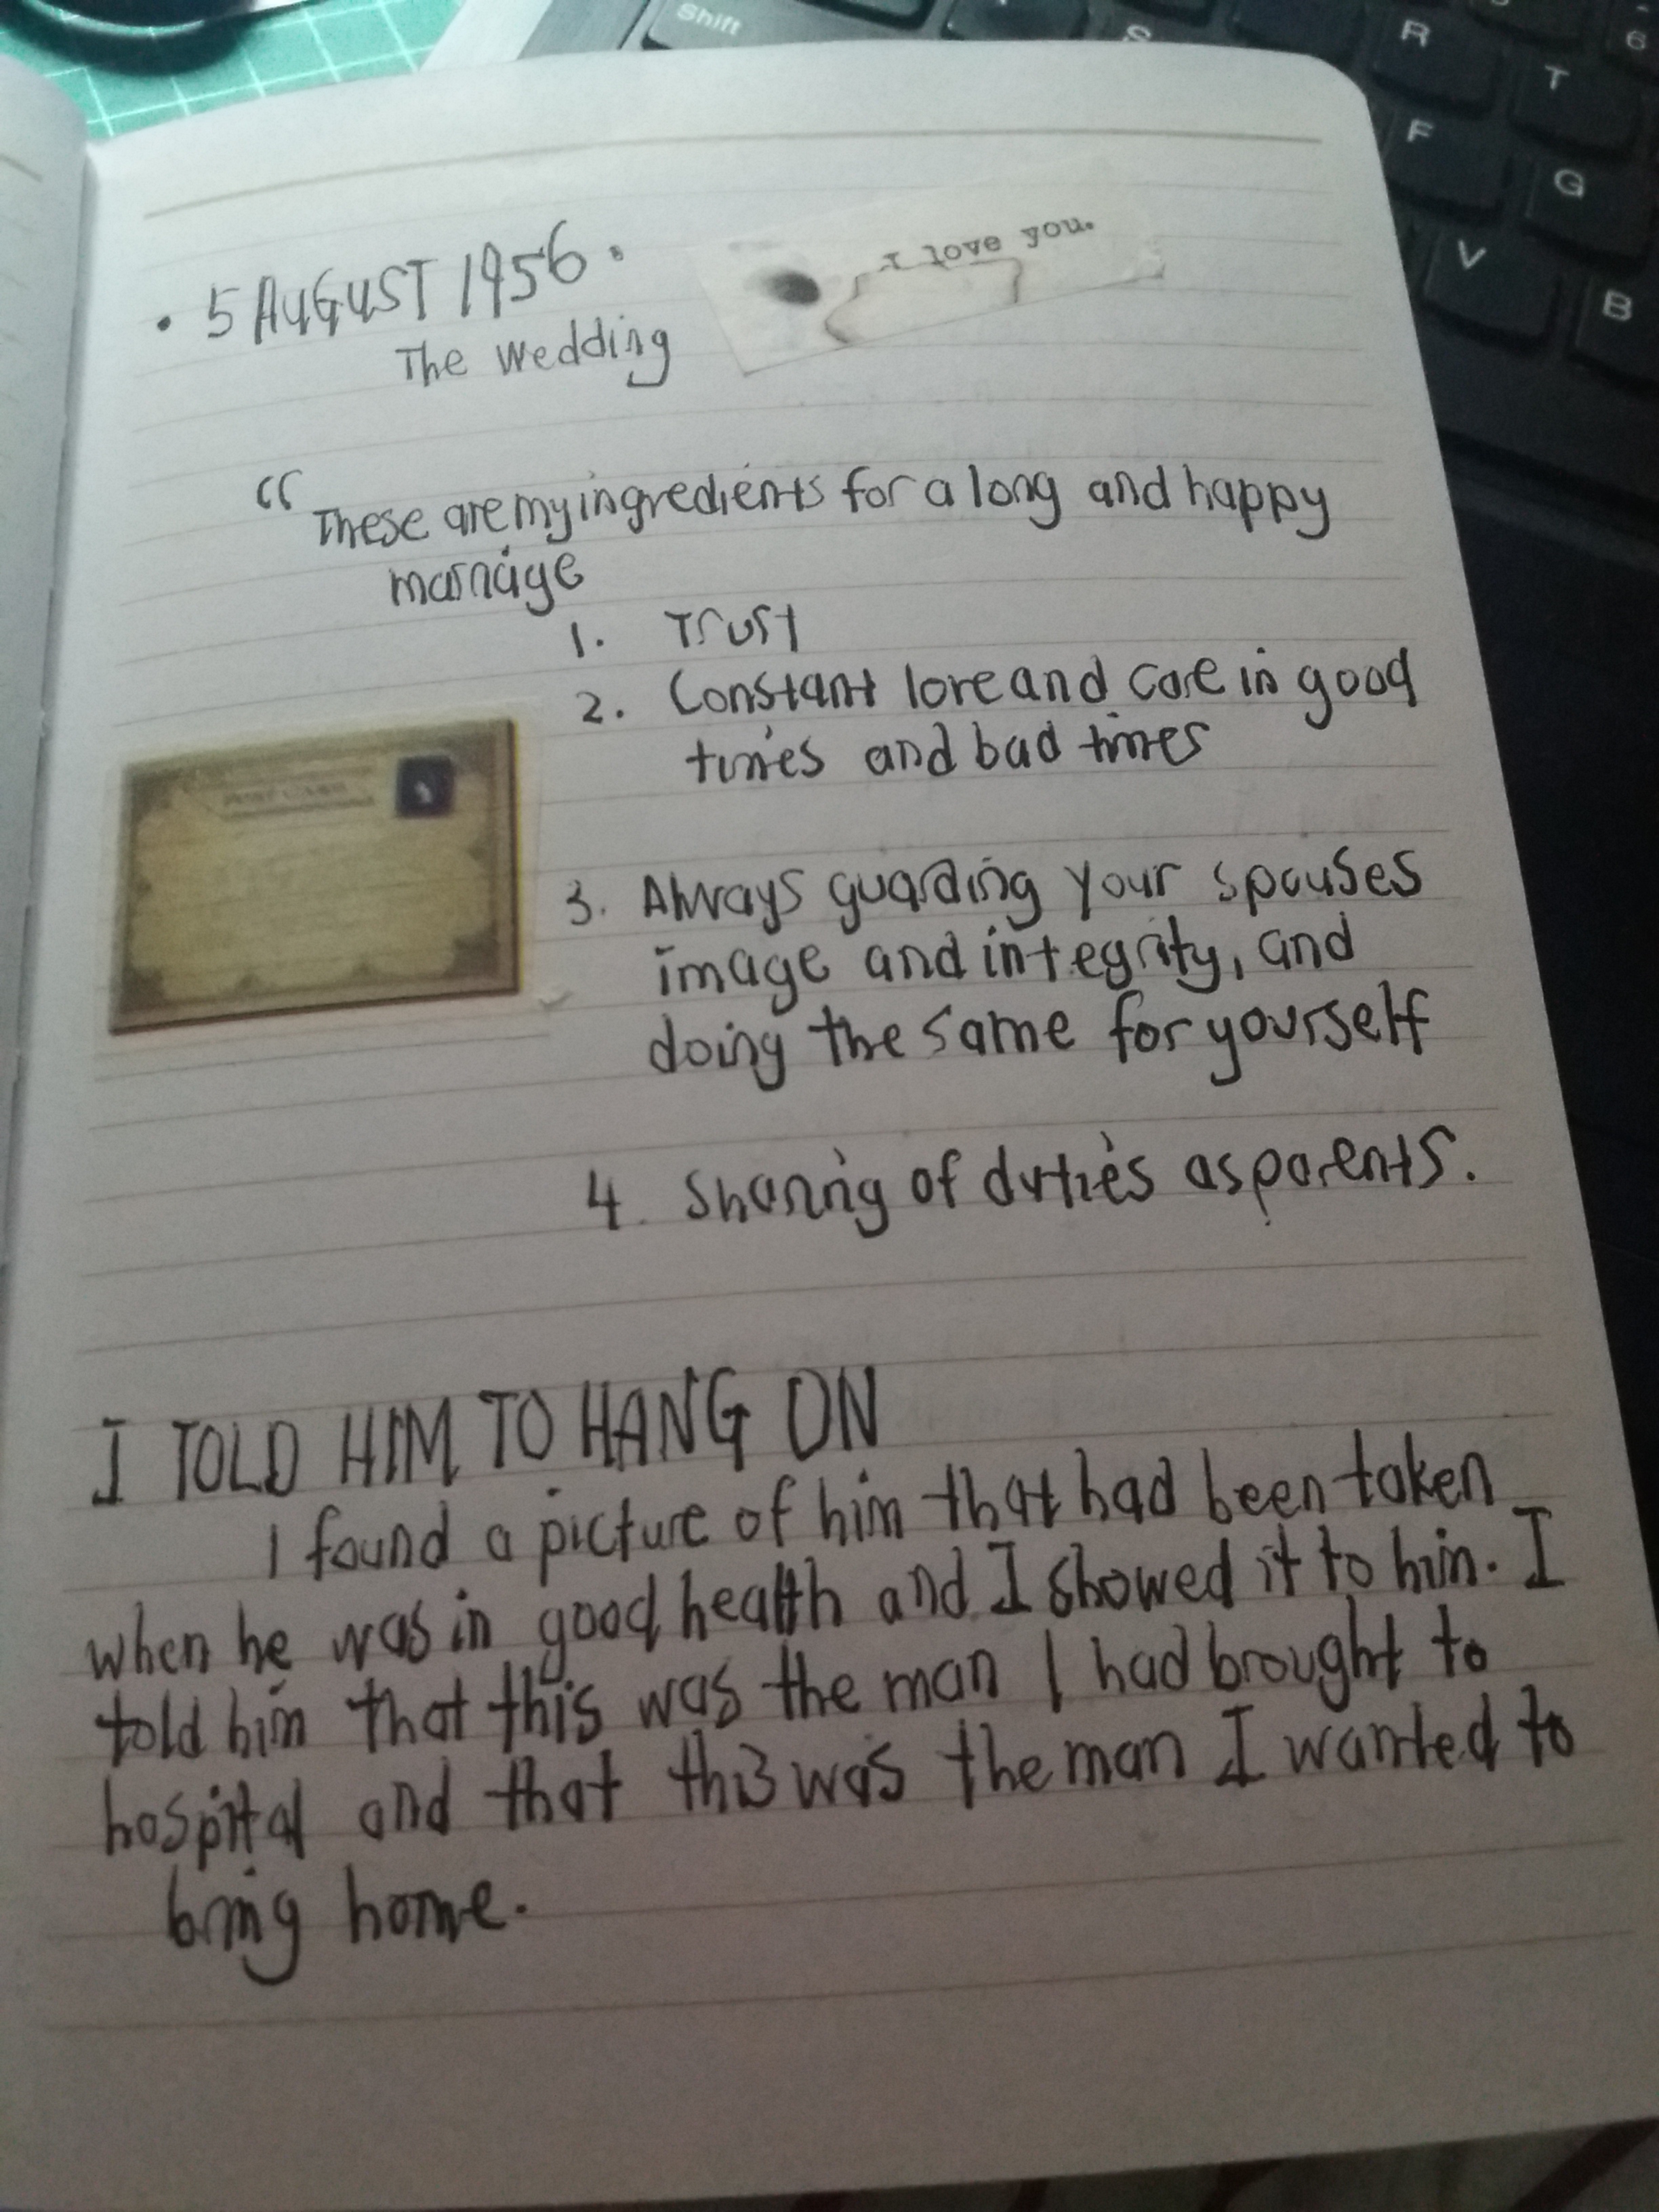 • 5 AUGUST 1956 •
The Wedding
I love you.
“These are my ingredients for a long and happy
marriage
1. Trust
2. Constant love and care in good
times and bad times
3. Always guarding your spouses
image and integrity, and
doing the same for yourself
4. Sharing of duties as parents.
I TOLD HIM TO HANG ON
I found a picture of him that had been taken
when he was in good health and I showed it to him. I
told him that this was the man I had brought to
hospital and that this was the man I wanted to
bring home.
Shift
S
R
T
6
F
G
V
B